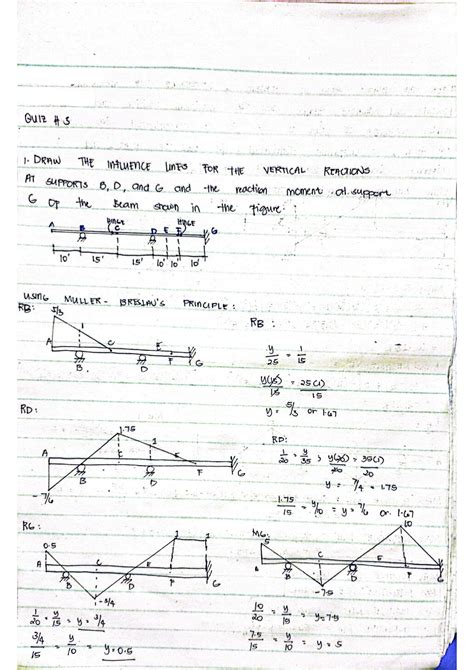 QUIZ # 3
1. DRAW THE INFLUENCE LINES FOR THE VERTICAL REACTIONS
AT SUPPORTS B, D, and G and the reaction moment at support
G of the Beam shown in the Figure:
HINGE HINGE
A B C D E F G
10' 15' 15' 10' 10' 10'
USING MULLER-BRESLAU'S PRINCIPLE:
RB:
5/3
1
A C E F
B D G
RB:
y/25 = 1/15
y(15)/15 = 25(1)/15
y = 5/3 or 1.67
RD:
1.75
1
A C E F
B D G
-7/6
RD:
1/20 = y/35 ; y(20)/20 = 35(1)/20
y = 7/4 = 1.75
1.75/15 = y/10 = y = 7/6 or 1.67
RG:
0.5
1 1
A C E F
B D G
-3/4
1/20 = y/15 = y = 3/4
3/4/15 = y/10 = y = 0.5
MG:
5
10
A C E F
B D G
-7.5
10/20 = y/15 = y = 7.5
7.5/15 = y/10 = y = 5